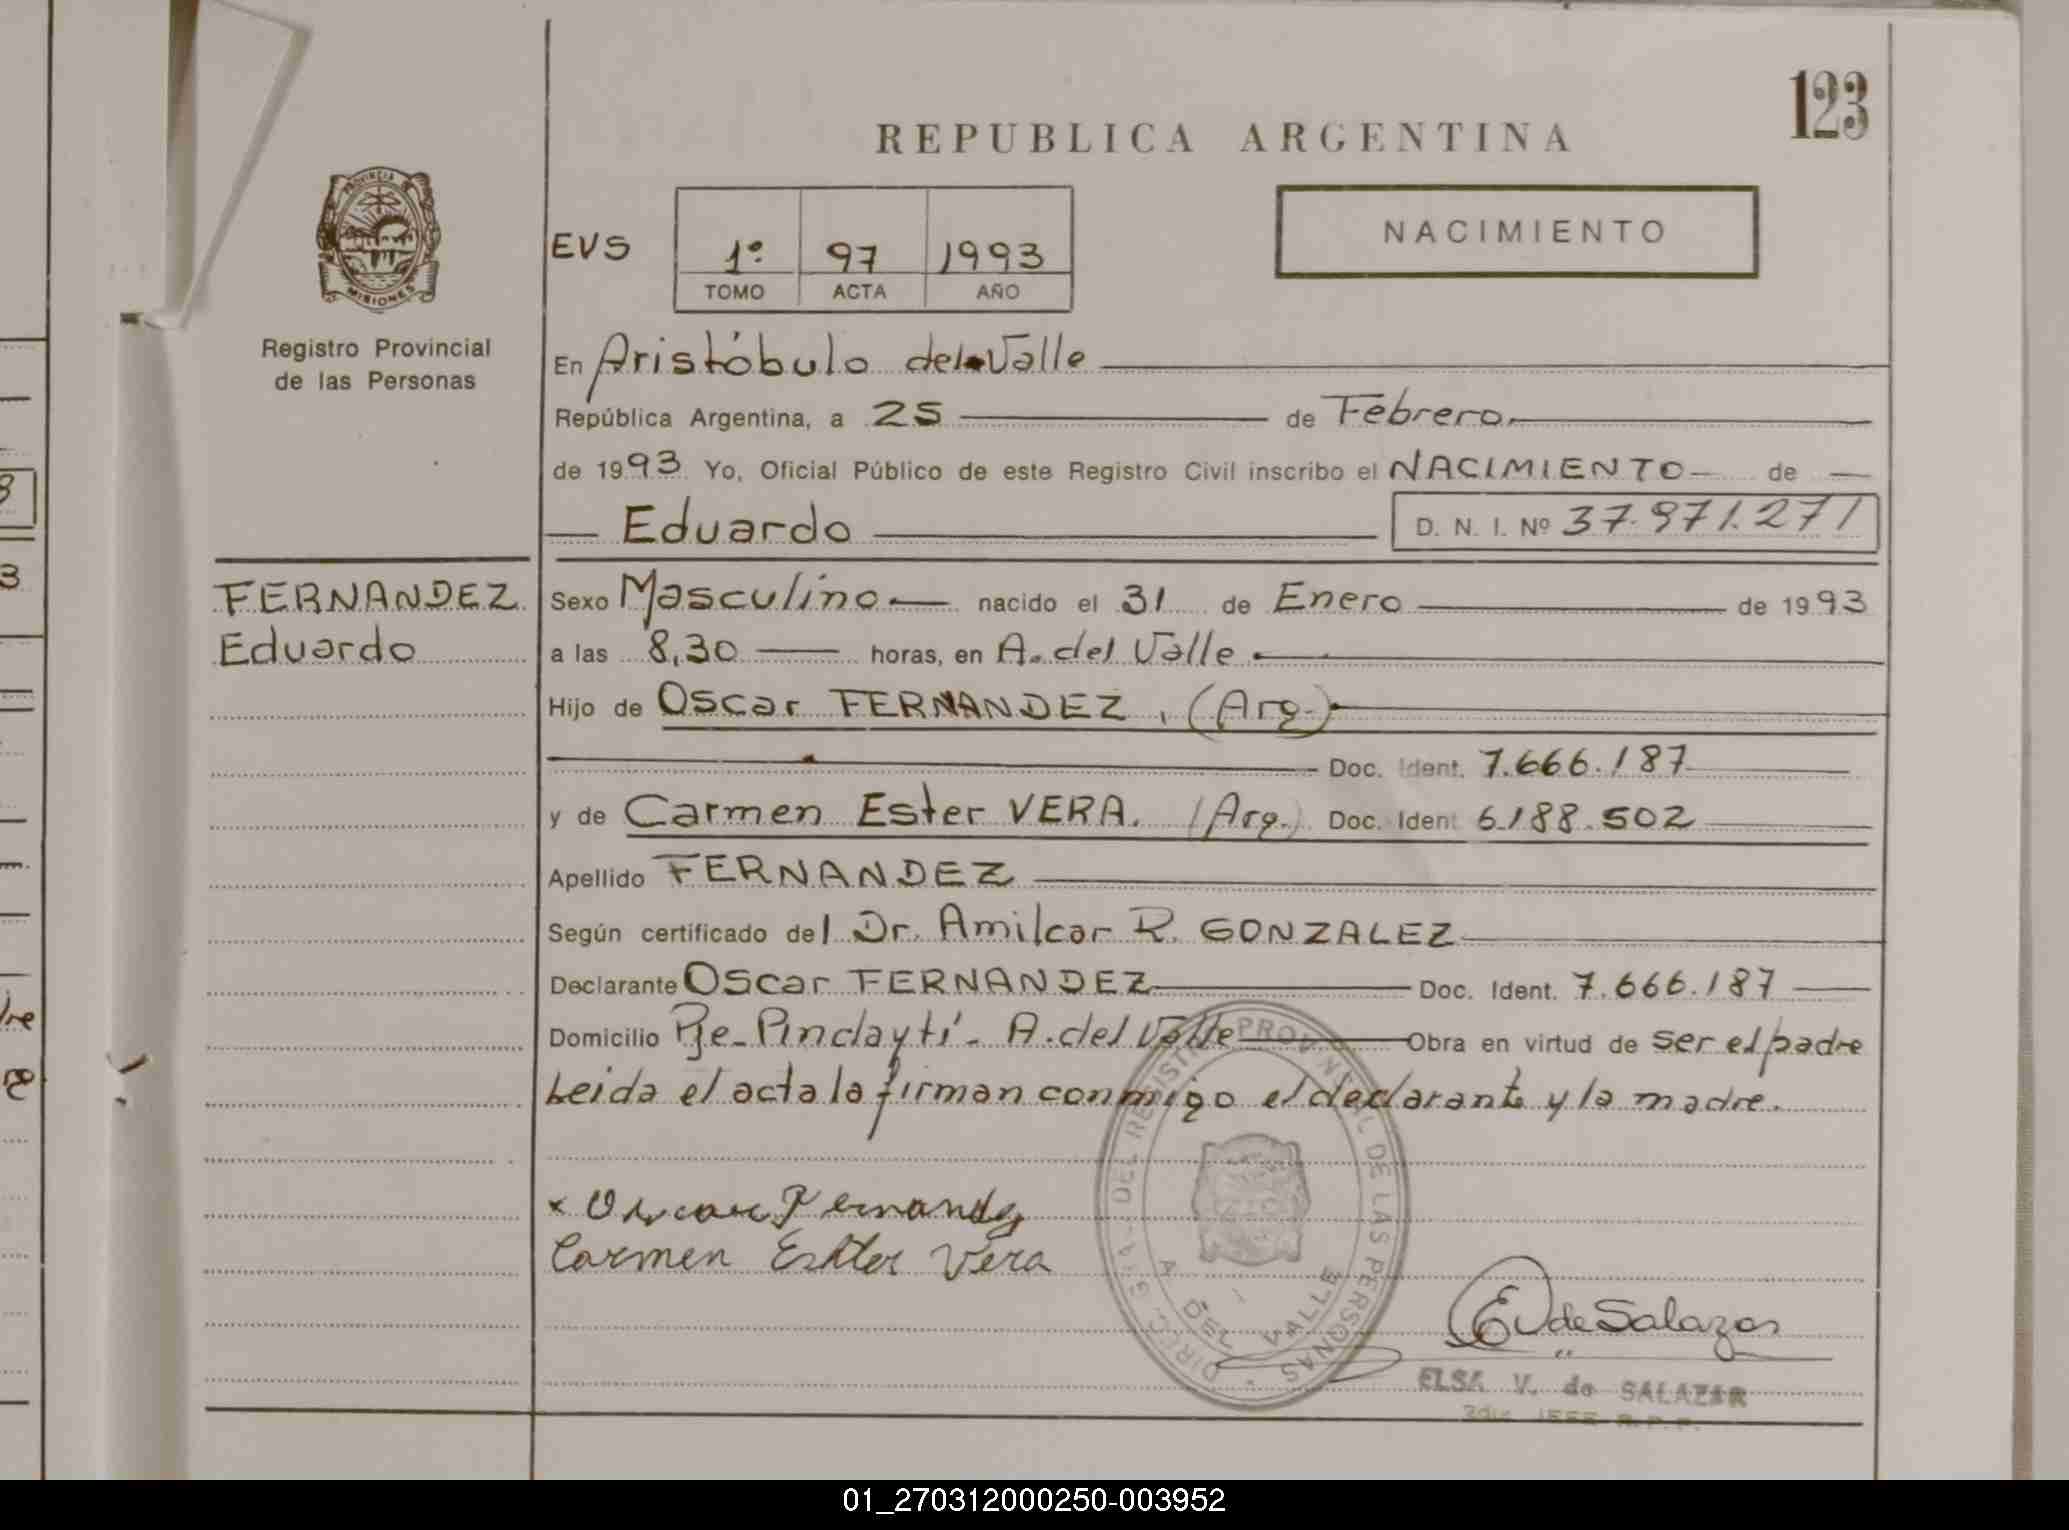 123
REPUBLICA ARGENTINA
PROVINCIA DE
MISIONES
Registro Provincial
de las Personas
EVS
1º 97 1993
TOMO ACTA AÑO
NACIMIENTO
En Aristóbulo del Valle
República Argentina, a 25 de Febrero
de 1993 Yo, Oficial Público de este Registro Civil inscribo el NACIMIENTO de
Eduardo D. N. I. Nº 37.971.271
FERNANDEZ
Eduardo
Sexo Masculino nacido el 31 de Enero de 1993
a las 8,30 horas, en A. del Valle
Hijo de Oscar FERNANDEZ, (Arg.)
Doc. Ident. 7.666.187
y de Carmen Ester VERA. (Arg.) Doc. Ident 6.188.502
Apellido FERNANDEZ
Según certificado del Dr. Amilcar R. GONZALEZ
Declarante Oscar FERNANDEZ Doc. Ident. 7.666.187
Domicilio Pje. Pindaytí - A. del Valle Obra en virtud de ser el padre
Leida el acta la firman conmigo el declarante y la madre.
x Oscar Fernandez
Carmen Ester Vera
DIREC. GRAL. DEL REGISTRO PROVINCIAL DE LAS PERSONAS
A. DEL VALLE
EV de Salazar
ELSA V. de SALAZAR
JEFE R.P.P.
8
3
01_270312000250-003952